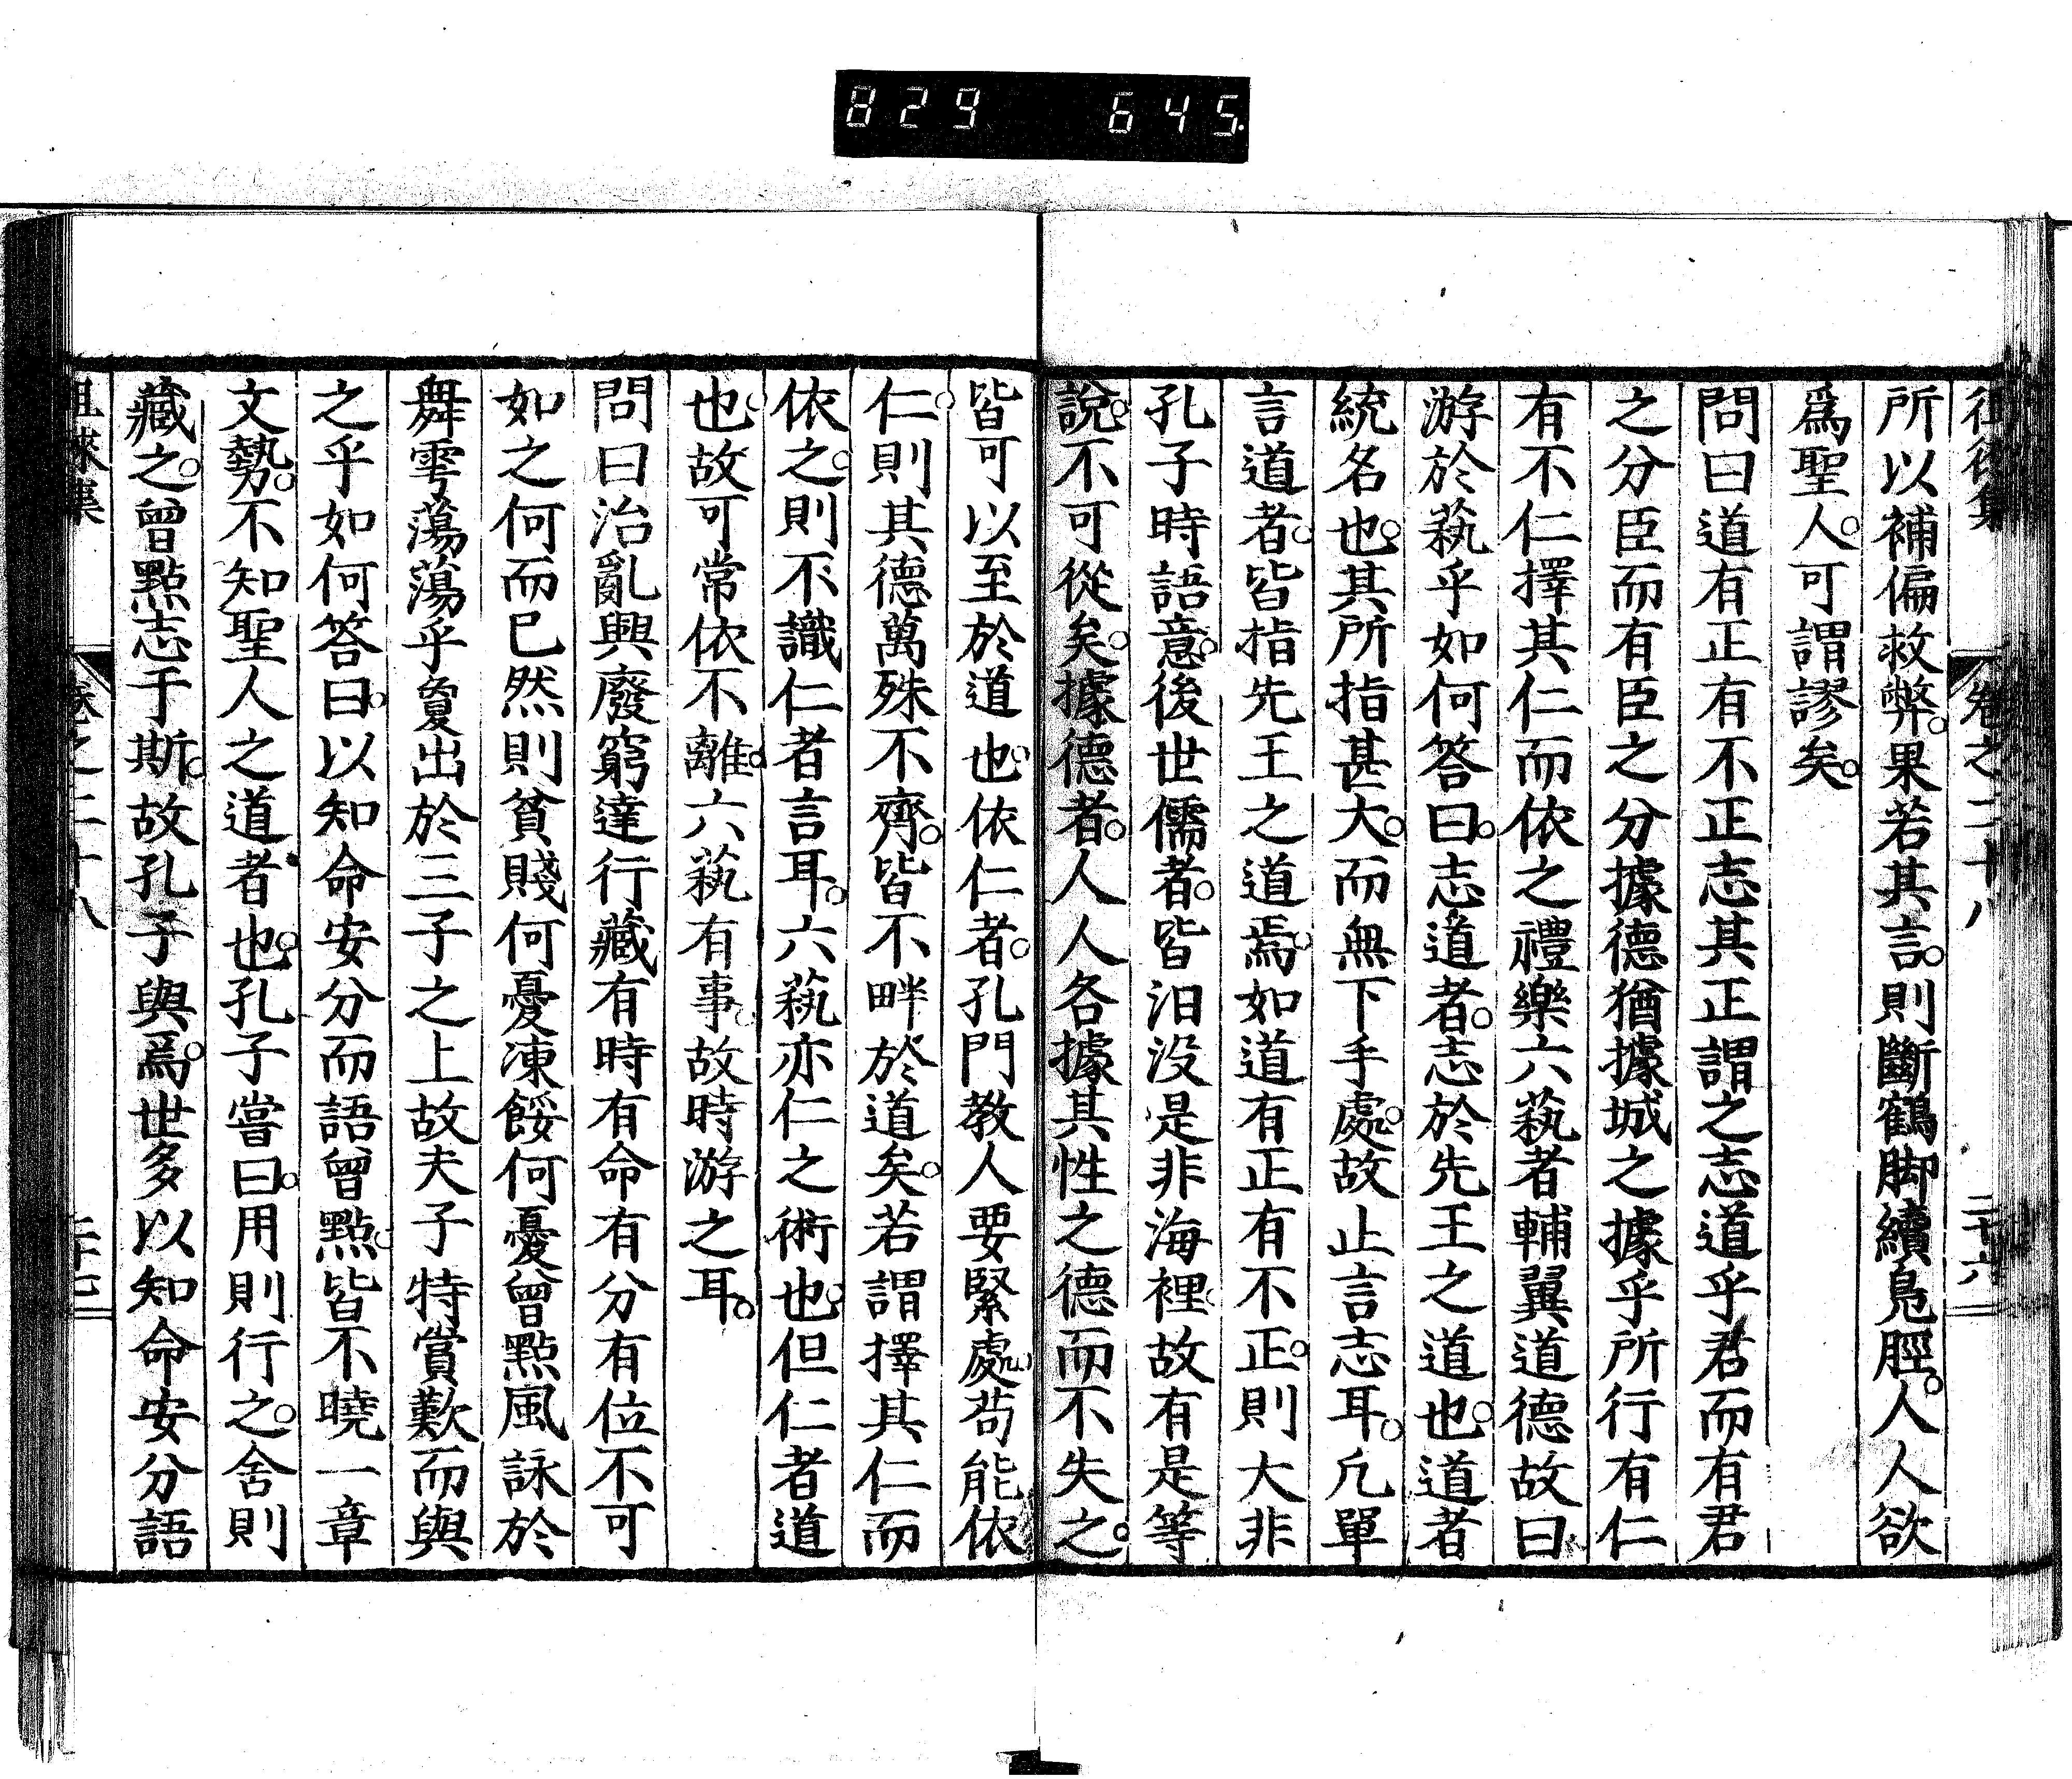 829 645
徂徠集 卷之二十八 二十六
所以補偏救弊。果若其言。則斷鶴脚續鳧脛。人人欲
爲聖人。可謂謬矣。
問曰道有正有不正志其正謂之志道乎君而有君
之分臣而有臣之分據德猶據城之據乎所行有仁
有不仁擇其仁而依之禮樂六藝者輔翼道德故曰
游於藝乎如何答曰。志道者。志於先王之道也。道者
統名也。其所指甚大。而無下手處。故止言志耳。凡單
言道者。皆指先王之道焉。如道有正有不正。則大非
孔子時語意。後世儒者。皆汨没是非海裡。故有是等
說。不可從矣。據德者。人人各據其性之德而不失之。
皆可以至於道也。依仁者。孔門教人要緊處。苟能依
仁。則其德萬殊不齊。皆不畔於道矣。若謂擇其仁而
依之。則不識仁者言耳。六藝亦仁之術也。但仁者道
也。故可常依不離。六藝有事。故時游之耳。
問曰治亂興廢窮達行藏有時有命有分有位不可
如之何而已然則貧賤何憂凍餒何憂曾點風詠於
舞雩蕩蕩乎敻出於三子之上故夫子特賞歎而與
之乎如何答曰。以知命安分而語曾點。皆不曉一章
文勢。不知聖人之道者也。孔子嘗曰。用則行之。舍則
藏之。曾點志于斯。故孔子與焉。世多以知命安分語
徂徠集 卷之二十八 二十七